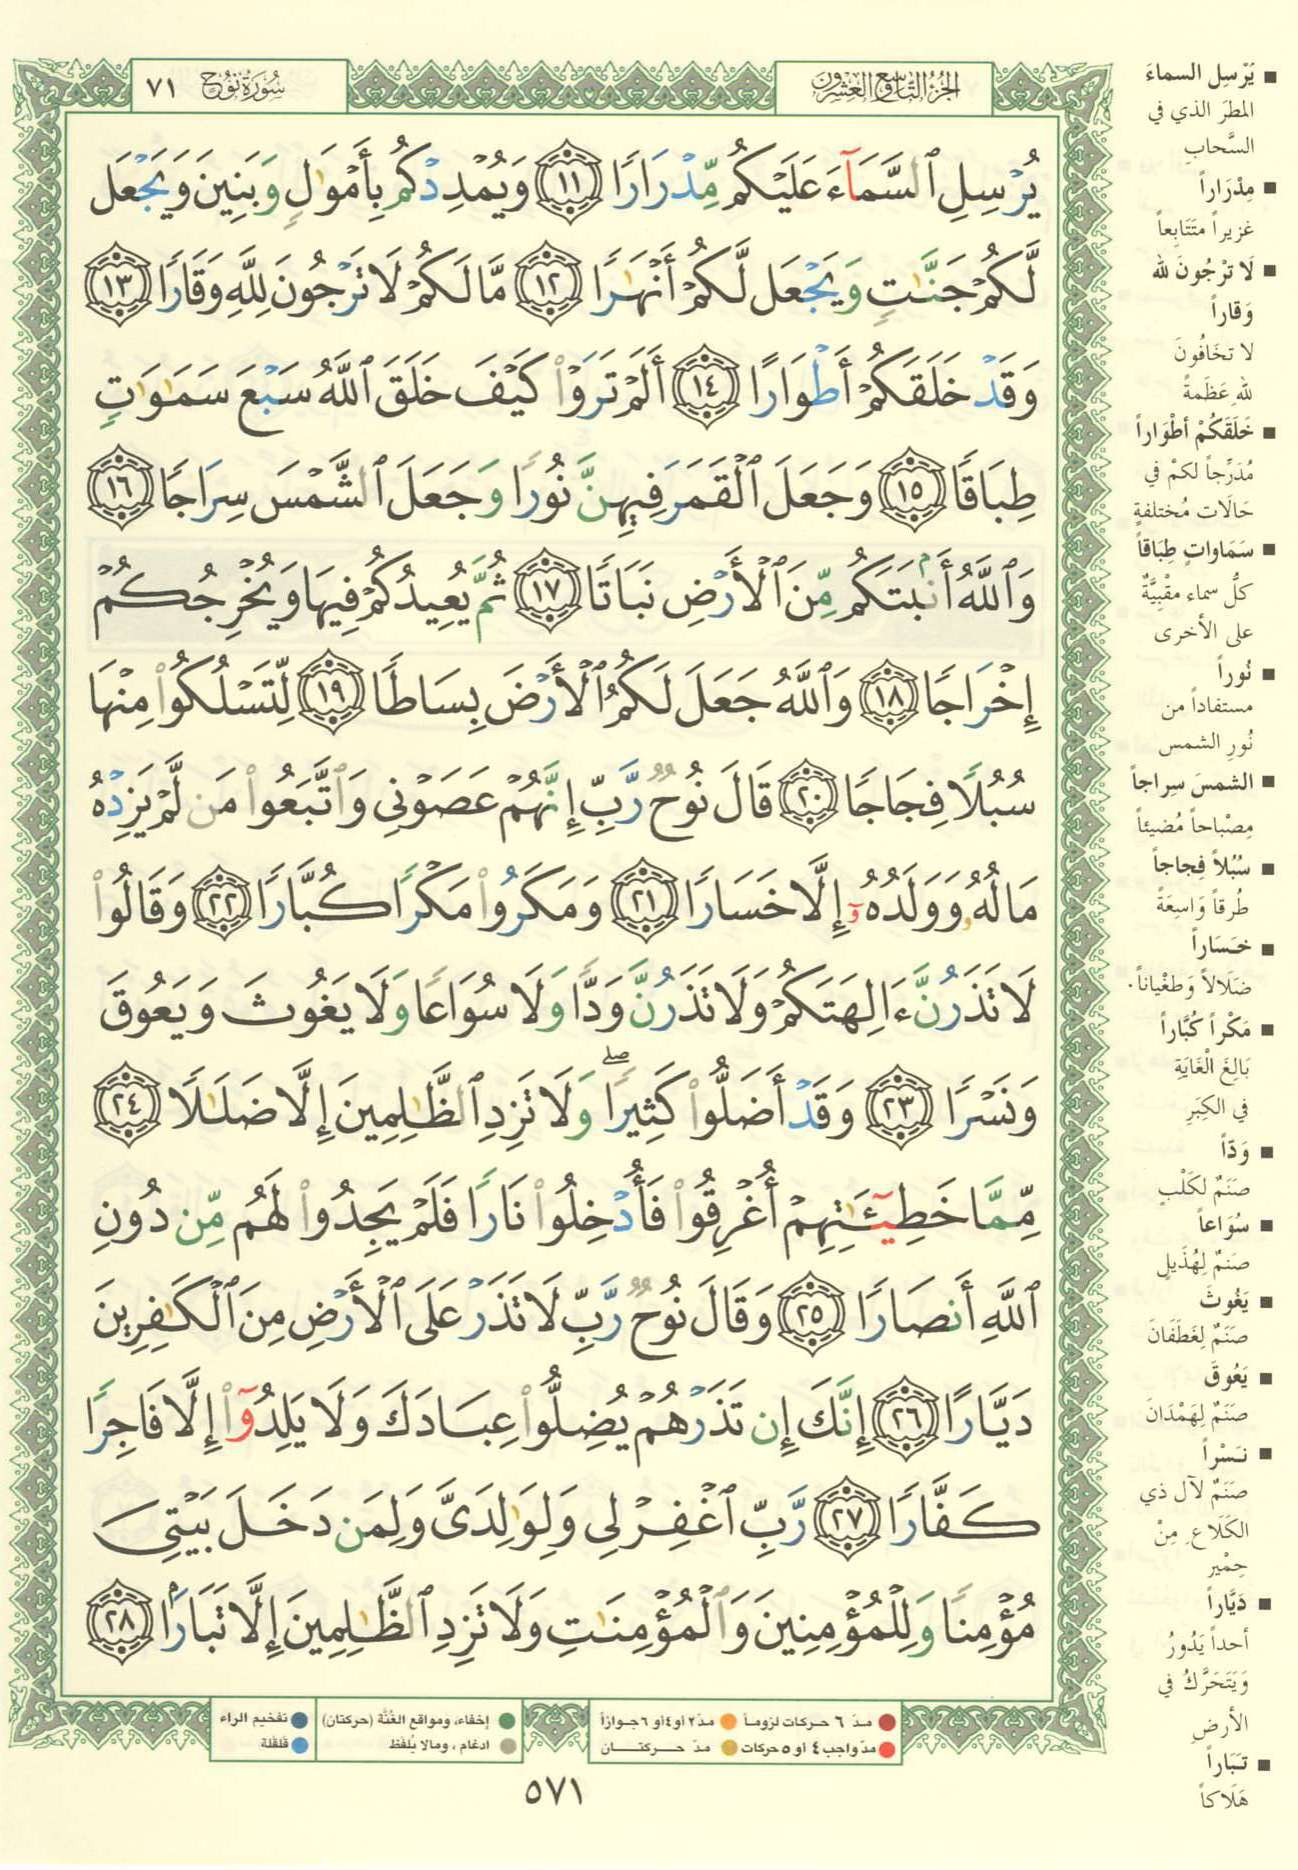 سُورَةُ نُوحٍ ٧١
الجُزْءُ التَّاسِعُ وَالعِشْرُونَ
يُرْسِلِ ٱلسَّمَآءَ عَلَيْكُم مِّدْرَارًا ١١ وَيُمْدِدْكُم بِأَمْوَٰلٍ وَبَنِينَ وَيَجْعَل
لَّكُمْ جَنَّٰتٍ وَيَجْعَل لَّكُمْ أَنْهَٰرًا ١٢ مَّا لَكُمْ لَا تَرْجُونَ لِلَّهِ وَقَارًا ١٣
وَقَدْ خَلَقَكُمْ أَطْوَارًا ١٤ أَلَمْ تَرَوْا۟ كَيْفَ خَلَقَ ٱللَّهُ سَبْعَ سَمَٰوَٰتٍ
طِبَاقًا ١٥ وَجَعَلَ ٱلْقَمَرَ فِيهِنَّ نُورًا وَجَعَلَ ٱلشَّمْسَ سِرَاجًا ١٦
وَٱللَّهُ أَنۢبَتَكُم مِّنَ ٱلْأَرْضِ نَبَاتًا ١٧ ثُمَّ يُعِيدُكُمْ فِيهَا وَيُخْرِجُكُمْ
إِخْرَاجًا ١٨ وَٱللَّهُ جَعَلَ لَكُمُ ٱلْأَرْضَ بِسَاطًا ١٩ لِّتَسْلُكُوا۟ مِنْهَا
سُبُلًا فِجَاجًا ٢٠ قَالَ نُوحٌ رَّبِّ إِنَّهُمْ عَصَوْنِى وَٱتَّبَعُوا۟ مَن لَّمْ يَزِدْهُ
مَالُهُۥ وَوَلَدُهُۥٓ إِلَّا خَسَارًا ٢١ وَمَكَرُوا۟ مَكْرًا كُبَّارًا ٢٢ وَقَالُوا۟
لَا تَذَرُنَّ ءَالِهَتَكُمْ وَلَا تَذَرُنَّ وَدًّا وَلَا سُوَاعًا وَلَا يَغُوثَ وَيَعُوقَ
وَنَسْرًا ٢٣ وَقَدْ أَضَلُّوا۟ كَثِيرًا ۖ وَلَا تَزِدِ ٱلظَّٰلِمِينَ إِلَّا ضَلَٰلًا ٢٤
مِّمَّا خَطِيٓـَٰٔتِهِمْ أُغْرِقُوا۟ فَأُدْخِلُوا۟ نَارًا فَلَمْ يَجِدُوا۟ لَهُم مِّن دُونِ
ٱللَّهِ أَنصَارًا ٢٥ وَقَالَ نُوحٌ رَّبِّ لَا تَذَرْ عَلَى ٱلْأَرْضِ مِنَ ٱلْكَٰفِرِينَ
دَيَّارًا ٢٦ إِنَّكَ إِن تَذَرْهُمْ يُضِلُّوا۟ عِبَادَكَ وَلَا يَلِدُوٓا۟ إِلَّا فَاجِرًا
كَفَّارًا ٢٧ رَّبِّ ٱغْفِرْ لِى وَلِوَٰلِدَىَّ وَلِمَن دَخَلَ بَيْتِىَ
مُؤْمِنًا وَلِلْمُؤْمِنِينَ وَٱلْمُؤْمِنَٰتِ وَلَا تَزِدِ ٱلظَّٰلِمِينَ إِلَّا تَبَارًۢا ٢٨
■ يُرْسِل السماءَ
المطرَ الذي في
السَّحابِ
■ مِدْرَاراً
غزيراً متَتَابِعاً
■ لَا تَرْجُونَ لله
وَقاراً
لا تخَافُونَ
للهِ عَظَمةً
■ خَلَقَكُمْ أطْوَاراً
مُدَرِّجاً لكمْ في
حَالَات مُختلفةٍ
■ سَمَاواتٍ طِبَاقاً
كلُّ سماء مقْبِيَّةٌ
على الأخرى
■ نُوراً
مستفاداً من
نُورِ الشمس
■ الشمسَ سِراجاً
مِصْباحاً مُضيئاً
■ سُبُلاً فِجاجاً
طُرقاً وَاسِعَةً
■ خَسَاراً
ضَلَالاً وَطغْياناً.
■ مَكْراً كُبَّاراً
بَالِغَ الْغَايَةِ
في الكِبَرِ
■ وَدّاً
صَنَمٌ لكَلْبٍ
■ سُوَاعاً
صَنَمٌ لِهُذَيلٍ
■ يَغُوثَ
صَنَمٌ لِغَطَفَانَ
■ يَعُوقَ
صَنَمٌ لِهَمْدَانَ
■ نَسْراً
صَنَمٌ لآل ذي
الكَلَاعِ مِنْ
حِمْير
■ دَيَّاراً
أحداً يَدُورُ
وَيَتَحَرَّكُ في
الأرضِ
■ تَبَاراً
هَلَاكاً
مدّ ٦ حركات لزوماً مدّ ٢ او ٤ او ٦ جوازاً إخفاء، ومواقع الغُنَّة (حركتان) تفخيم الراء
مدّ واجب ٤ او ٥ حركات مدّ حركتان ادغام ، ومالا يُلفظ قلقلة
٥٧١